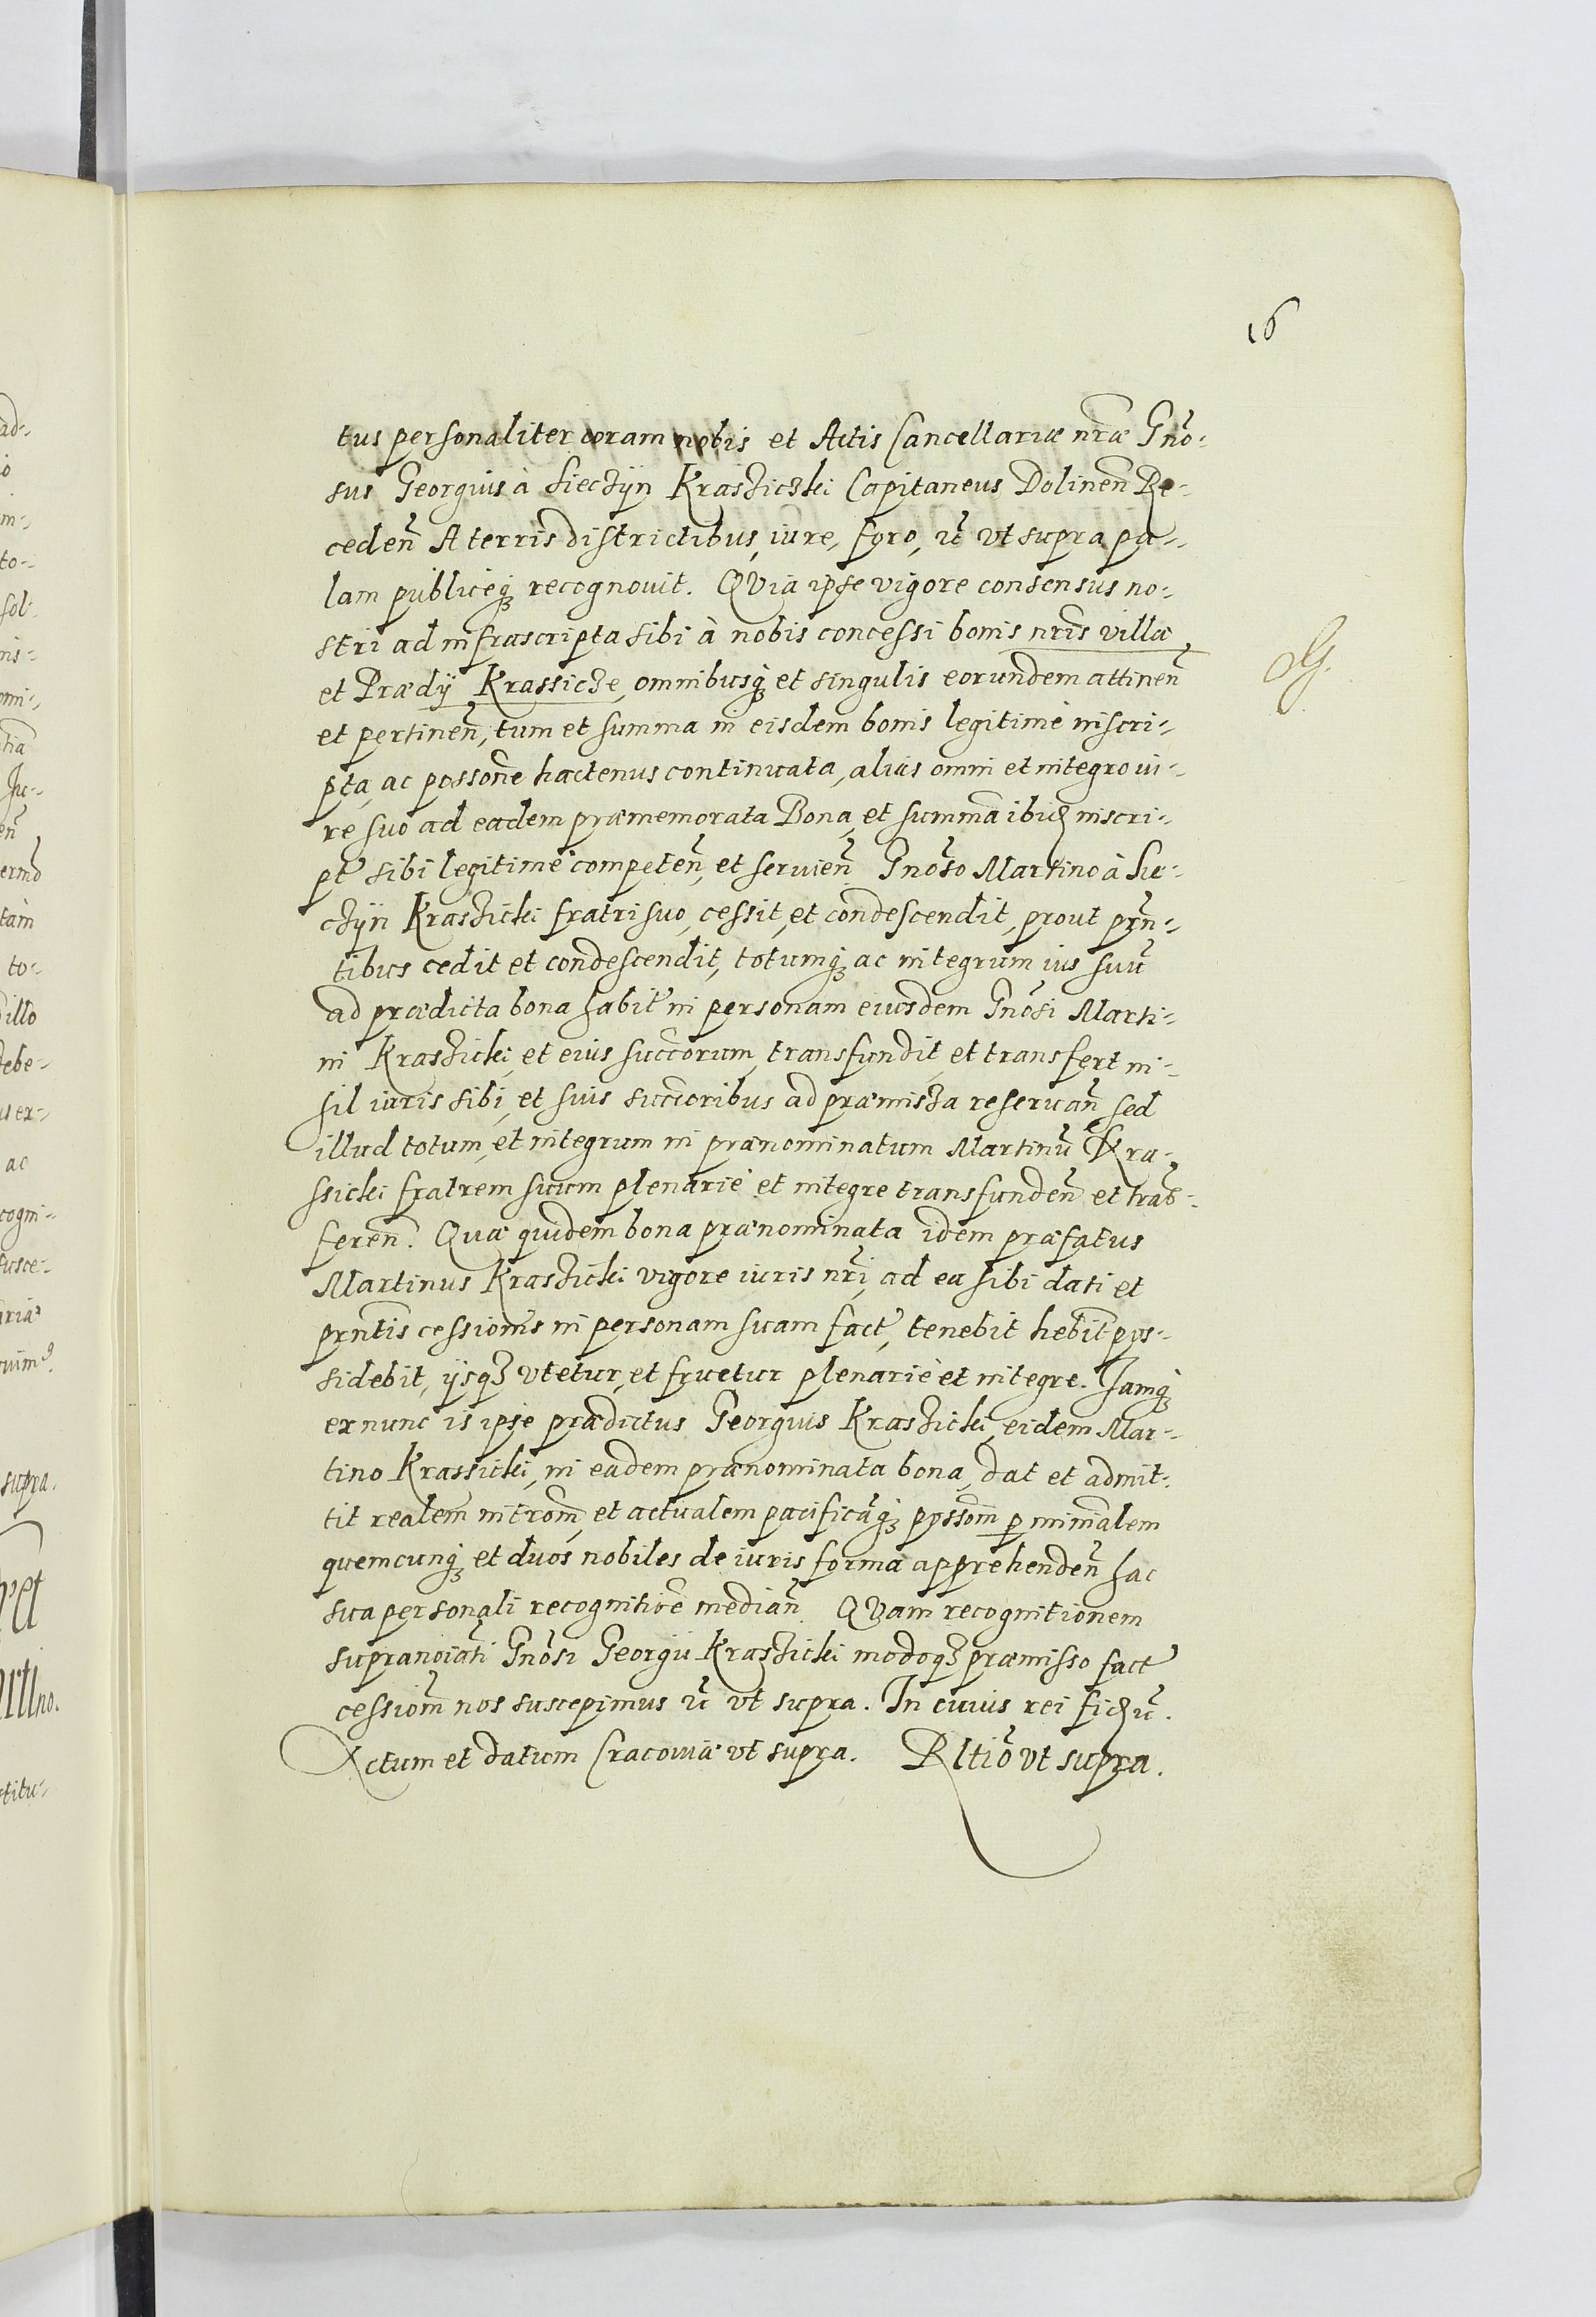 16
tus personaliter coram nobis et Actis Cancellariæ nr̃æ Gño-
sus Georgius à Siecżÿn Krasżicżki Capitaneus Dolineñ Re-
cedeñ A terris districtibus, iure, foro, ut̃ vt supra pa-
lam publiceq₃ recognouit. QVia ipse vigore consensus no-
stri ad infrascripta sibi à nobis concessi bonis nr̃is villæ
et Prædÿ Krassicże, omnibusq₃ et singulis eorundem attineñ
et pertineñ, tum et summa in eisdem bonis legitimè inscri-
pta, ac possone hactenus continuata, alias omni et integro iu-
re suo ad eadem præmemorata Bona, et summa ibid inscri-
pt sibi legitimè competeñ, et seruieñ Gnõso Martino à Sie-
cżÿn Krasżicki fratri suo, cessit, et condescendit, prout prñ-
tibus cedit et condescendit, totumq₃ ac integrum ius suũ
ad prædicta bona habit in personam eiusdem Gnõsi Marti-
ni Krasżicki, et eius succorum, transfundit, et transfert ni-
hil iuris sibi, et suis succoribus ad præmissa reseruañ sed
illud totum, et integrum in prænominatum Martinũ Kra-
ssicki fratrem suum plenariè et integre transfundeñ et trãs-
fereñ. Quæ quidem bona prænominata idem præfatus
Martinus Krasżicki vigore iuris nr̃i, ad ea sibi dati et
prñtis cessionis in personam suam fact, tenebit hebit pos-
sidebit, ÿsq₃ vtetur, et fruetur plenariè et integre. Jamq₃
ex nunc is ipse prædictus Georgius Krasżicki, eidem Mar-
tino Krassicki, in eadem prænominata bona, dat et admit-
tit realem intrõm, et actualem pacificãq₃ possom p minr̃alem
quemcunq₃ et duos nobiles de iuris forma apprehendeñ hac
sua personali recognitiõe mediañ QVam recognitionem
supranoiati Gnõsi Georgii Krasżicki modoq₃ præmisso fact
cessiom nos suscepimus ut̃ vt supra. In cuius rei fidũ.
Actum et datum Cracouiæ vt supra. Rltiõ vt supra.